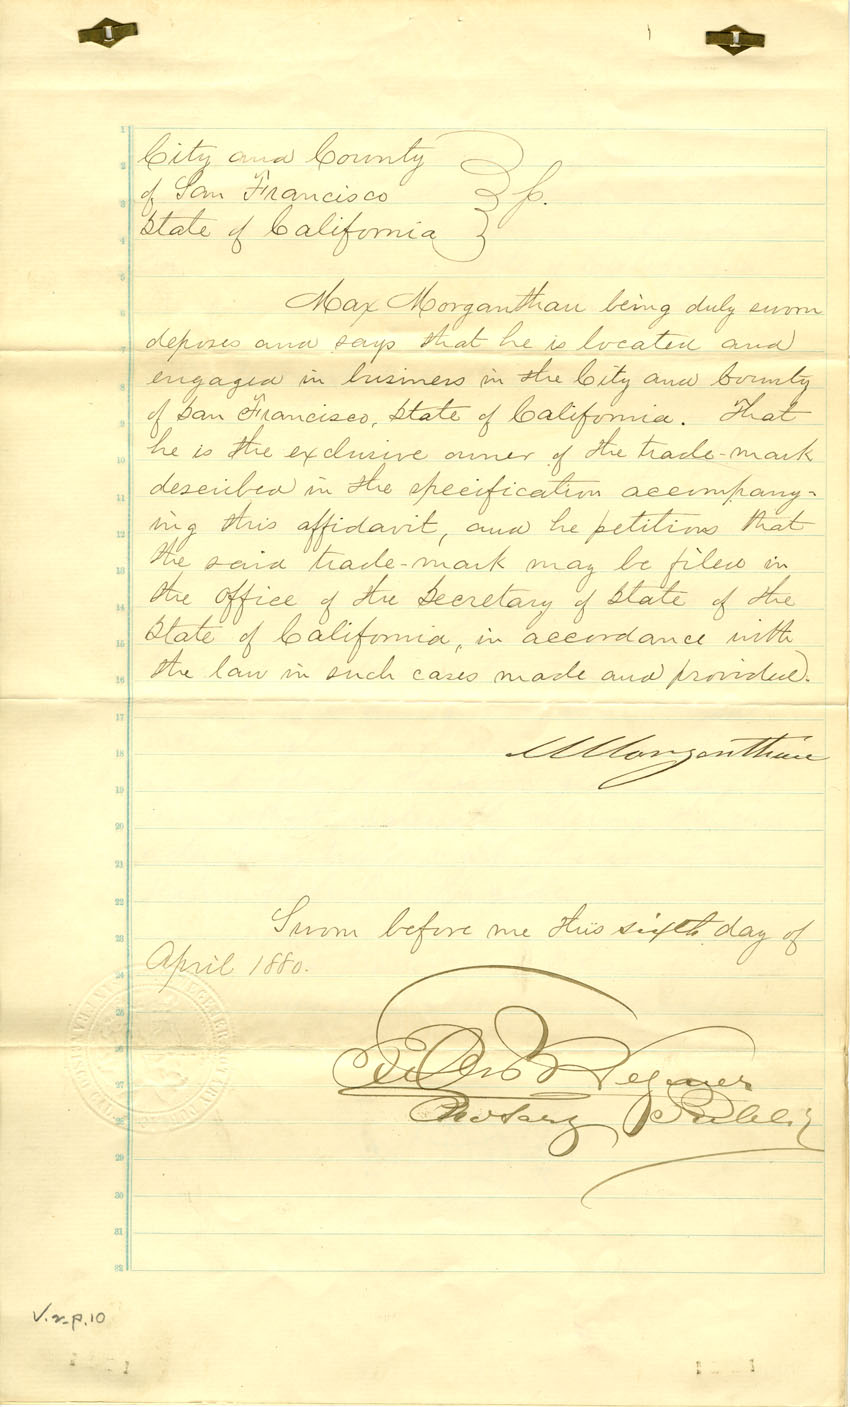 City and County
of San Francisco
State of California
Max Morganthau being duly sworn
deposes and says that he is located and
engaged in business in the City and County
of San Francisco, State of California. That
he is the exclusive owner of the trade-mark
described in the specification accompany-
ing this affidavit, and he petitions that
the said trade-mark may be filed in
the office of the Secretary of State of the
State of California, in accordance with
the law in such cases made and provided.
M Morganthau
Sworn before me this sixth day of
April 1880.
Notary Public
V.2-p.10
1
2
3
4
5
6
7
8
9
10
11
12
13
14
15
16
17
18
19
20
21
22
23
24
25
26
27
28
29
30
31
32